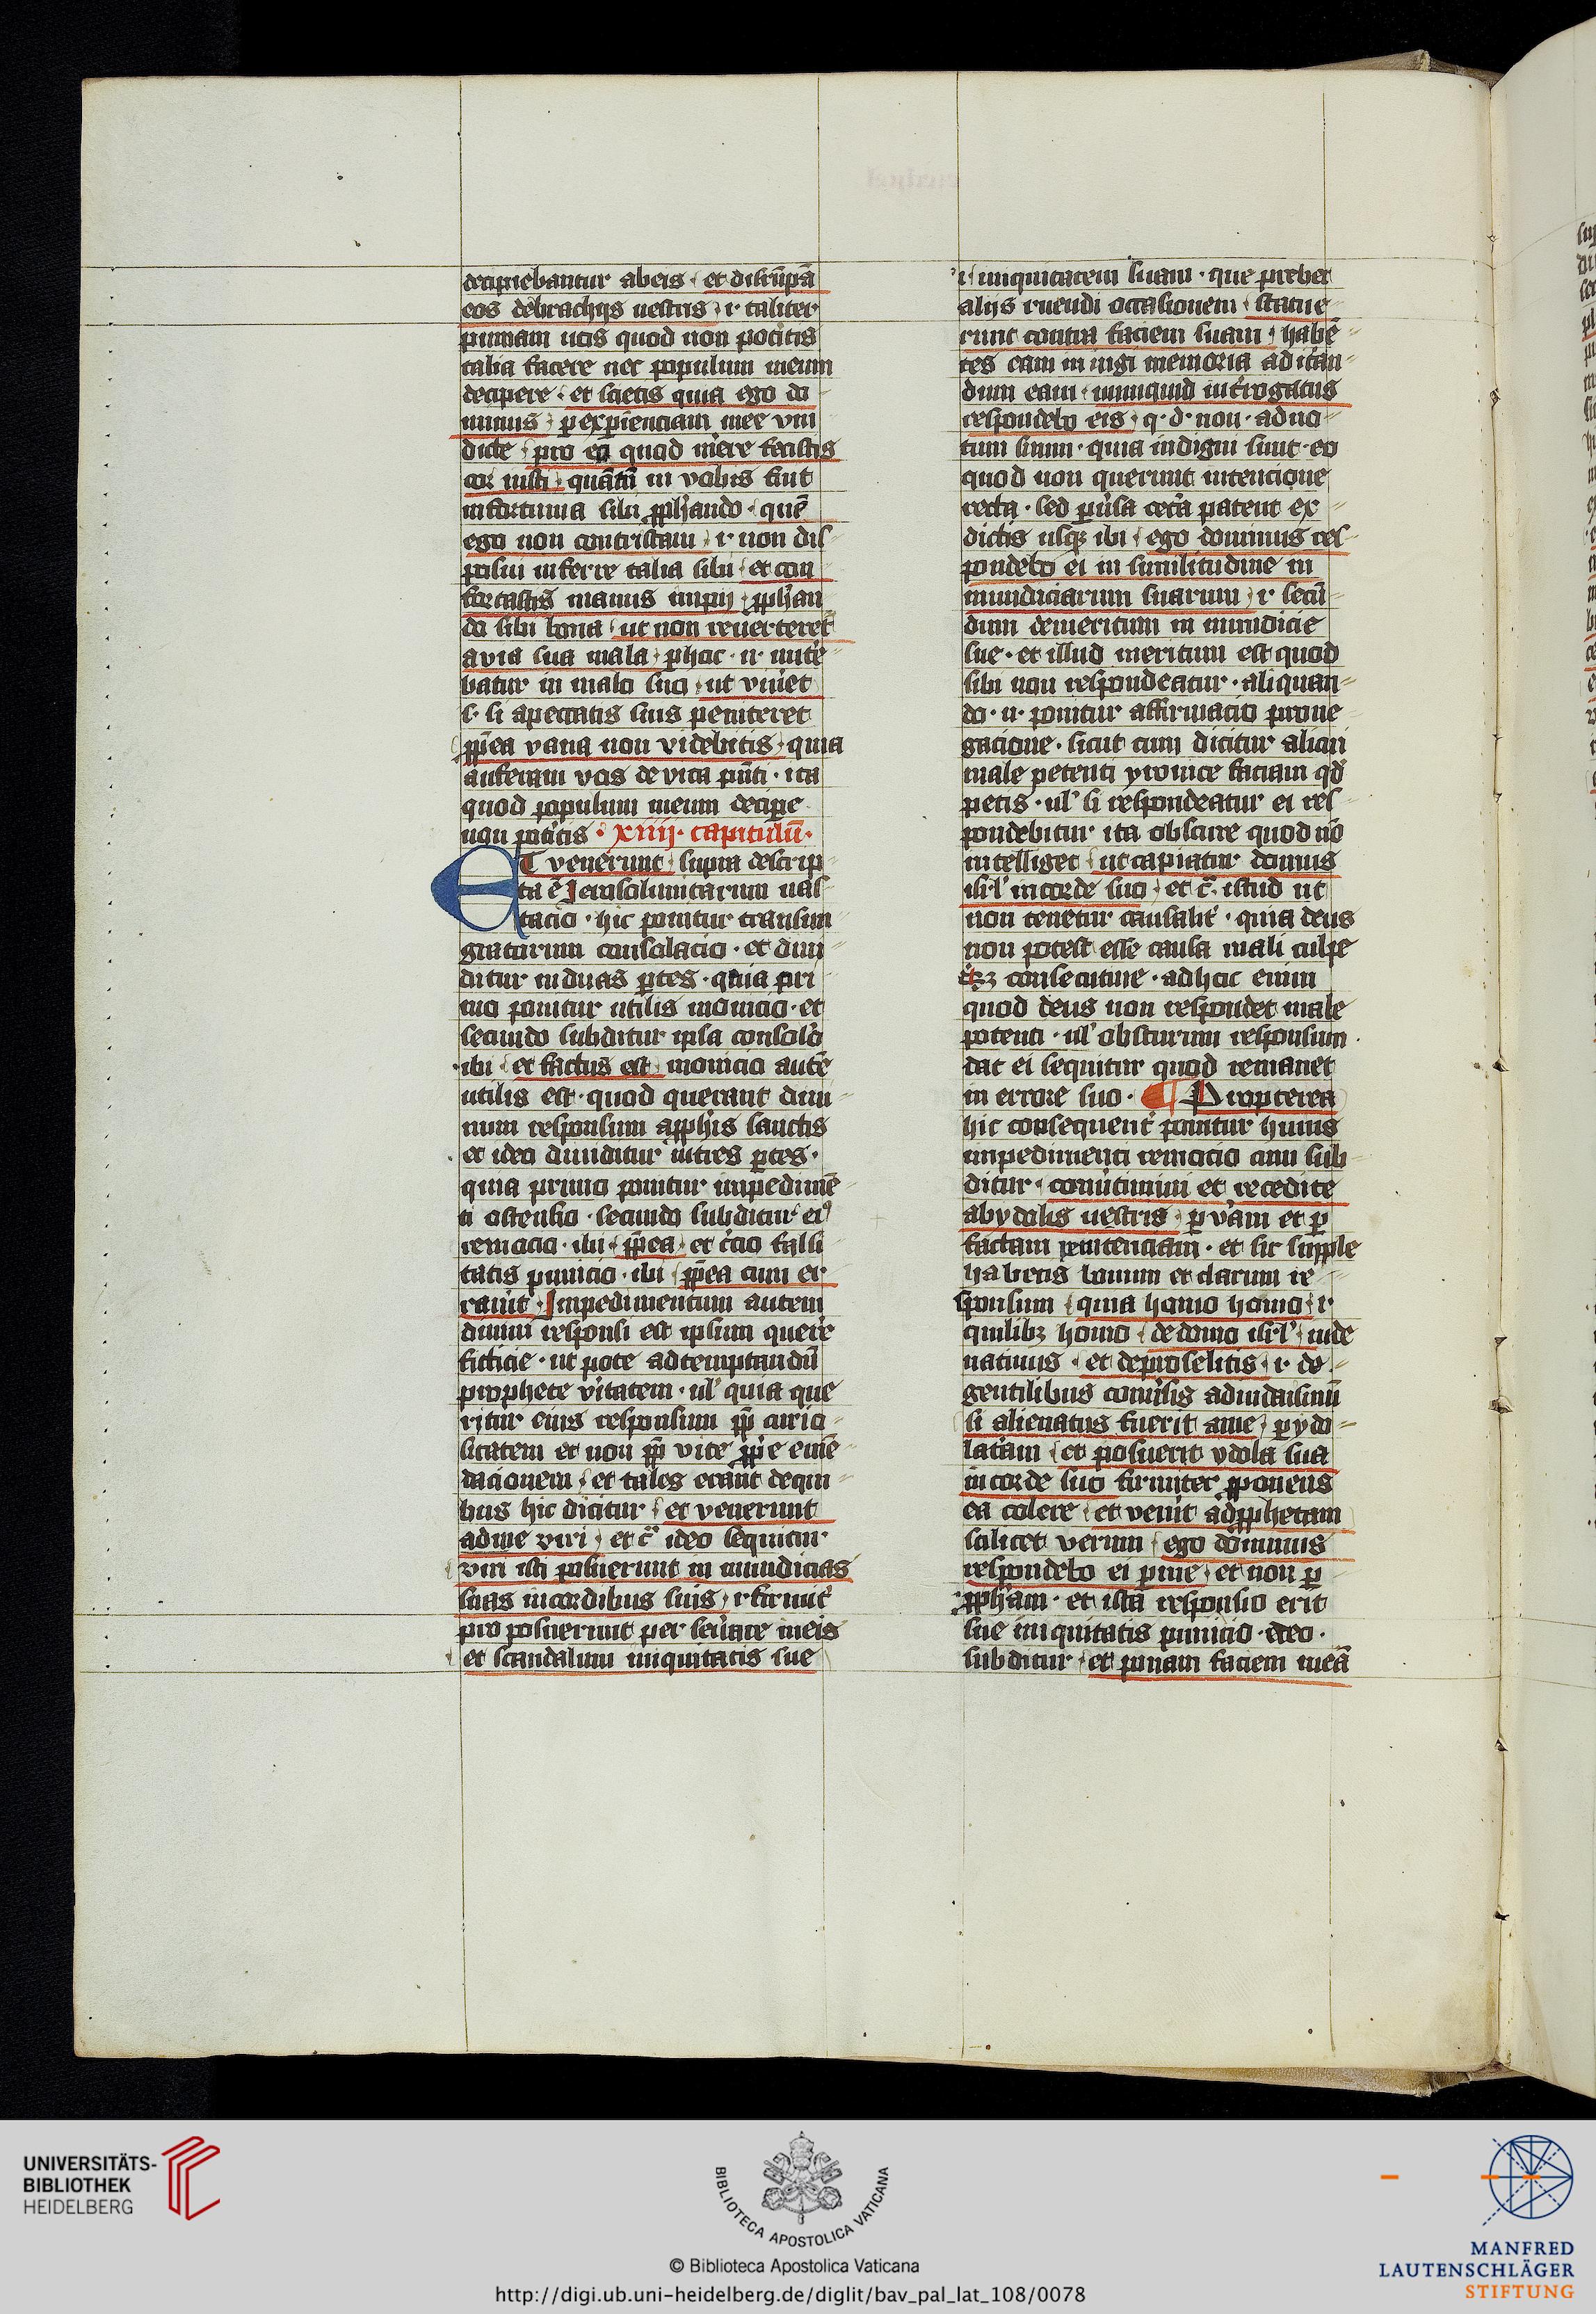 decipiebantur ab eis · et disrūpā
eos de brachijs uestris · i· taliter
puniam uos quod non potitis
talia facere nec populum meum
decipere · et scietis quia ego do
minus · p experienciam mee vin
dicte · pro eo quod merere fecistis
cor iusti · quātū in vobis fuit
infortunia sibi pphando · quē
ego non contristaui · i· non dis
posui inferre talia sibi · et con
fortastis manus impij · pphan
do sibi bona · ut non reuerteret
a via sua mala · p hoc · n· nite
batur in malo suo · ut viuet
s· si a peccatis suis peniteret
ppea vana non videbitis · quia
auferam vos de vita pnti · ita
quod populum meum decipe
non potitis · xiiij · capitulū ·
ET venerunt · supra descrip
ta ē Jerosolimitarum uas
tacio · hic ponitur transmi
gratorum consolacio · et diui
ditur in duas ptes · quia pri
mo ponitur utilis monicio · et
secundo subditur ipsa consolo
ibi · et factus est · monicio autē
utilis est · quod querant diui
num responsum a pphis sanctis
et ideo diuiditur in tres ptes ·
quia primo ponitur impedimē
ti ostensio · secundo subditur ei9
remocio · ibi · ppea · et tcio falsi
tatis punicio · ibi · ppea cum er
rauit · Impedimentum autem
diuini responsi est ipsum quere
ficticie · ut pote ad temptandū
prophete vitatem · ul quia que
ritur eius responsum pp curio
sitatem et non pp vite ppe emē
dacionem · et tales erant de qui
bus hic dicitur · et venerunt
ad me viri · et c ideo sequitur
viri isti posuerunt in mundicias
suas in cordibus suis · i· firmit
pro posuerunt per seuerare in eis
et scandalum iniquitatis sue
i· iniquitatem suam · que prebet
alijs ruendi occasionem · statue
runt contra faciem suam · habē
tes eam in iugi memoria ad itan
dum eam · numquid introgatus
respondebo eis · q· d· non · ad uo
tum suum · quia indigni sunt · eo
quod non querunt intencione
recta · sed puersa cetera patent ex
dictis usq ibi · ego dominus res
pondebo ei in similitudine in
mundiciarum suarum · i· secū
dum demeritum in mundicie
sue · et illud meritum est quod
sibi non respondeatur · aliquan
do · n· ponitur affirmacio pro ne
gacione · sicut cum dicitur alicui
male petenti yronice faciam qd
petis · ul si respondeatur ei res
pondebitur ita obscure quod nō
intelliget · ut capiatur domus
isrl in corde suo · et c· istud ut
non tenetur causalit · quia deus
non potest esse causa mali culpe
consecutiue · ad hoc enim
quod deus non respondet male
potenti · ul obscurum responsum
dat ei sequitur quod remanet
in errore suo · ¶ Propterea
hic consequent ponitur huius
impedimenti remocio cum sub
ditur · conutimini et recedite
ab ydolis uestris · p vam et p
factam penitenciam · et sic supple
habetis bonum et clarum re
sponsum · quia homo homo · i·
quilibz homo · de domo isrl · iude
natiuus · et de proselitis · i· de
gentilibus conuersis ad iudaismū
si alienatus fuerit a me · p ydo
latam · et posuerit ydola sua
in corde suo firmiter pponens
ea colere · et venit ad pphetam
scilicet verum · ego dominus
respondebo ei p me · et non p
ppham · et ista responsio erit
sue iniquitatis punicio · ideo ·
subditur · et ponam faciem meā
UNIVERSITÄTS-
BIBLIOTHEK
HEIDELBERG
BIBLIOTECA APOSTOLICA VATICANA
© Biblioteca Apostolica Vaticana
http://digi.ub.uni-heidelberg.de/diglit/bav_pal_lat_108/0078
MANFRED
LAUTENSCHLÄGER
STIFTUNG